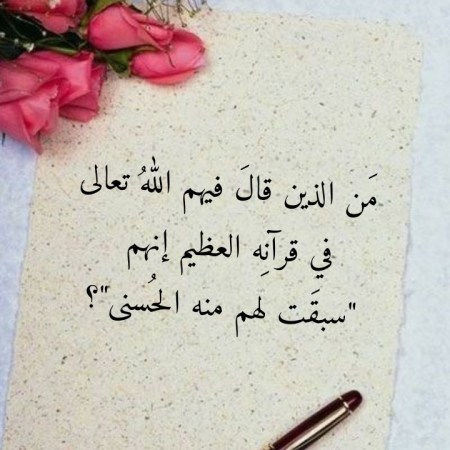 مَن الذين قالَ فيهم اللهُ تعالى
في قرآنِه العظيم إنهم
"سبقَت لهم منه الحُسنى"؟